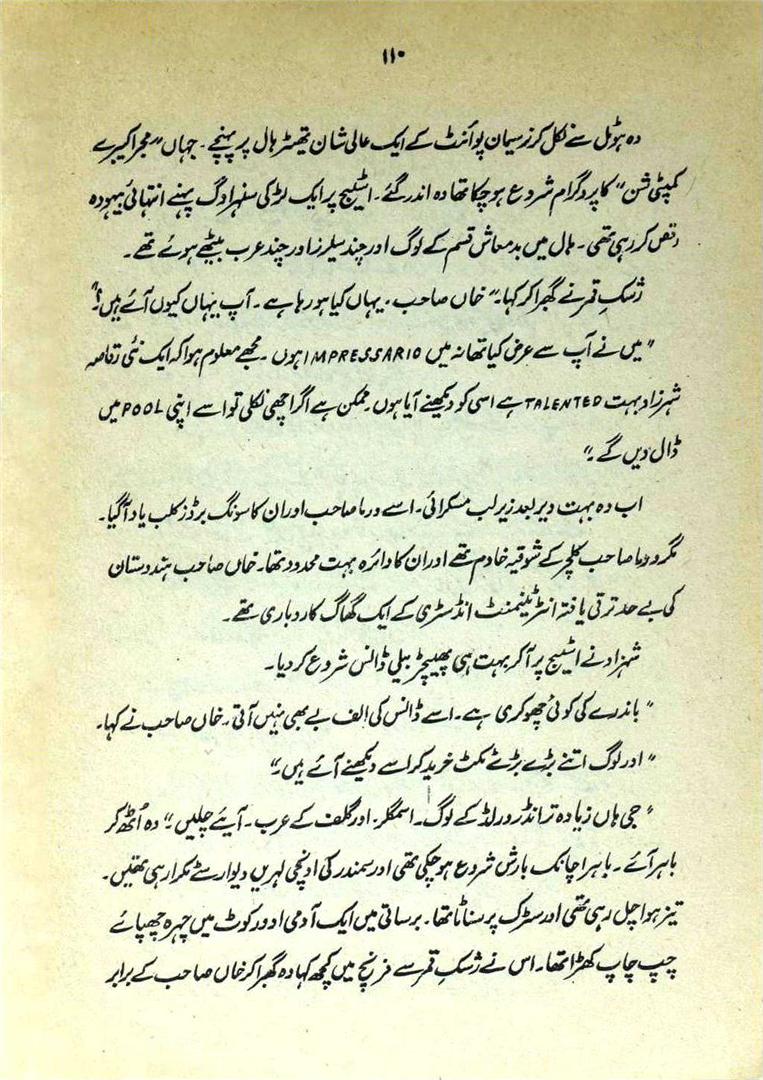 ۱۱۰
وہ ہوٹل سے نکل کر نریمان پوائنٹ کے ایک عالی شان تھیٹر ہال پر پہنچے۔ جہاں "مجرا کیبرے
کمپٹی شن" کا پروگرام شروع ہوچکا تھا وہ اندر گئے۔ اسٹیج پر ایک لڑکی سنہرا وگ پہنے انتہائی بیہودہ
رقص کر رہی تھی۔ ہال میں بدمعاش قسم کے لوگ اور چند سیلرز اور چند عرب بیٹھے ہوئے تھے۔
ژسکِ قمر نے گھبرا کر کہا۔ "خاں صاحب۔ یہاں کیا ہو رہا ہے۔ آپ یہاں کیوں آئے ہیں؟"
"میں نے آپ سے عرض کیا تھا نہ میں IMPRESSARIO ہوں۔ مجھے معلوم ہوا کہ ایک نئی رقاصہ
شہرزاد بہت TALENTED ہے اسی کو دیکھنے آیا ہوں۔ ممکن ہے اگر اچھی نکلی تو اسے اپنی POOL میں
ڈال دیں گے۔"
اب وہ بہت دیر بعد زیر لب مسکرائی۔ اسے ورما صاحب اور ان کا سونگ برڈز کلب یاد آگیا۔
مگر ورما صاحب کلچر کے شوقیہ خادم تھے اور ان کا دائرہ بہت محدود تھا۔ خاں صاحب ہندوستان
کی بے حد ترقی یافتہ انٹرٹینمنٹ انڈسٹری کے ایک گھاگ کاروباری تھے۔
شہزاد نے اسٹیج پر آکر بہت ہی پھیچڑ بیلی ڈانس شروع کر دیا۔
"باندرے کی کوئی چھوکری ہے۔ اسے ڈانس کی الف بے بھی نہیں آتی۔ خاں صاحب نے کہا۔
"اور لوگ اتنے بڑے بڑے ٹکٹ خرید کر اسے دیکھنے آئے ہیں۔"
"جی ہاں زیادہ تر انڈر ورلڈ کے لوگ۔ اسمگلر۔ اور گلف کے عرب۔ آیئے چلیں۔" وہ اُٹھ کر
باہر آئے۔ باہر اچانک بارش شروع ہوچکی تھی اور سمندر کی اونچی لہریں دیوار سے ٹکرا رہی تھیں۔
تیز ہوا چل رہی تھی اور سڑک پر سناٹا تھا۔ برساتی میں ایک آدمی اوور کوٹ میں چہرہ چھپائے
چپ چاپ کھڑا تھا۔ اس نے ژسکِ قمر سے فرنچ میں کچھ کہا وہ گھبرا کر خاں صاحب کے برابر